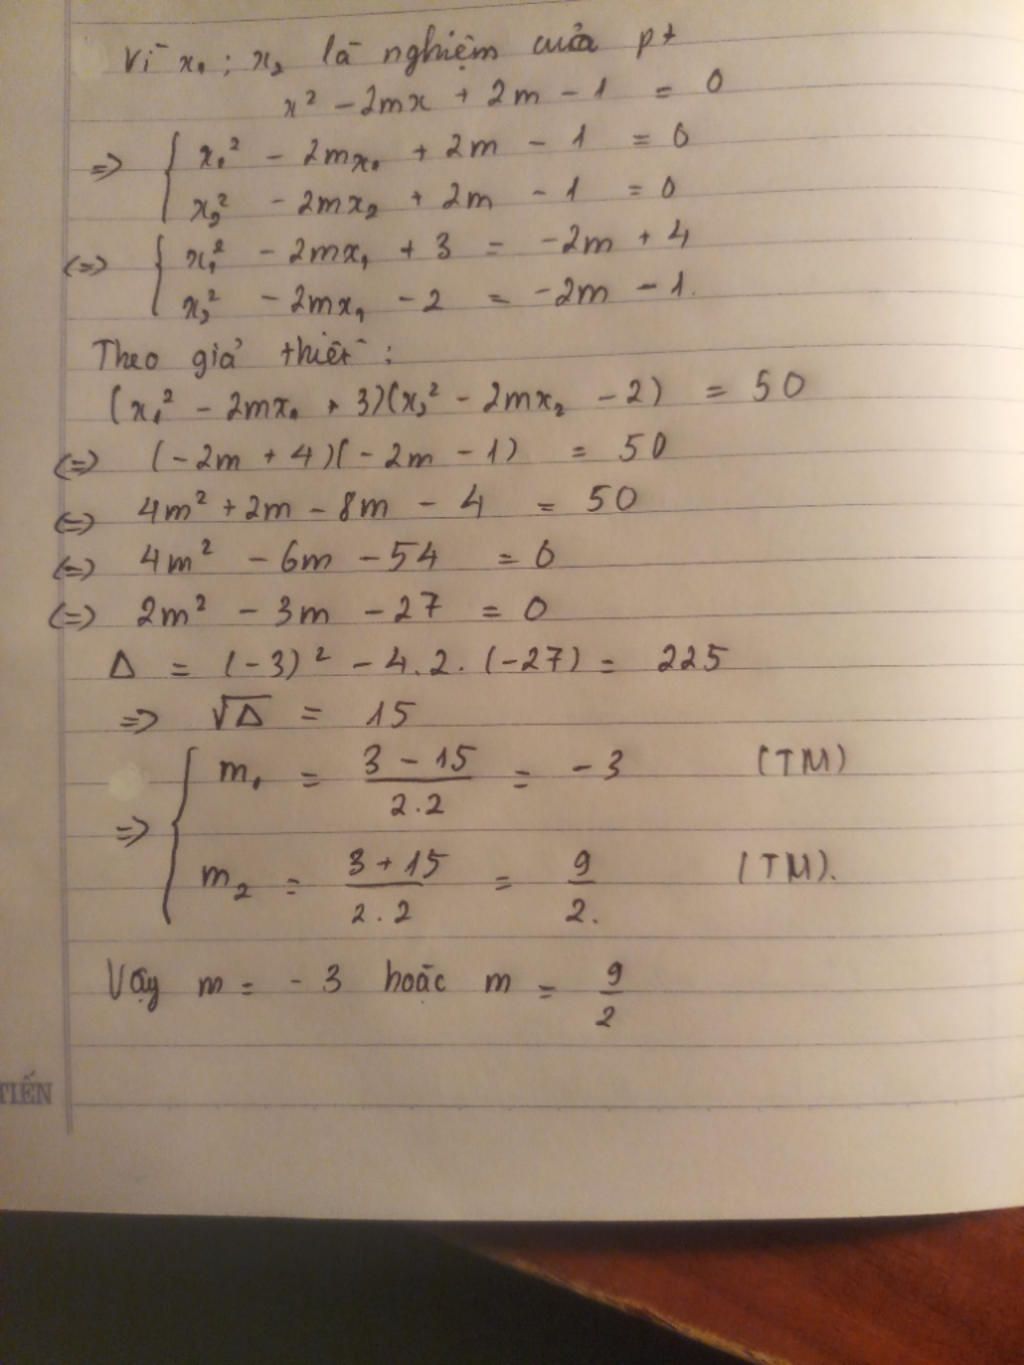 Vì x₁ ; x₂ là nghiệm của pt
x² - 2mx + 2m - 1 = 0
=> { x₁² - 2mx₁ + 2m - 1 = 0
x₂² - 2mx₂ + 2m - 1 = 0
(=) { x₁² - 2mx₁ + 3 = -2m + 4
x₂² - 2mx₁ - 2 = -2m - 1.
Theo giả thiết :
(x₁² - 2mx₁ + 3)(x₂² - 2mx₂ - 2) = 50
(=) (-2m + 4)(-2m - 1) = 50
(=) 4m² + 2m - 8m - 4 = 50
(=) 4m² - 6m - 54 = 0
(=) 2m² - 3m - 27 = 0
Δ = (-3)² - 4.2.(-27) = 225
=> √Δ = 15
=> { m₁ = (3 - 15)/(2.2) = -3 (TM)
m₂ = (3 + 15)/(2.2) = 9/2. (TM).
Vậy m = -3 hoặc m = 9/2
TIẾN